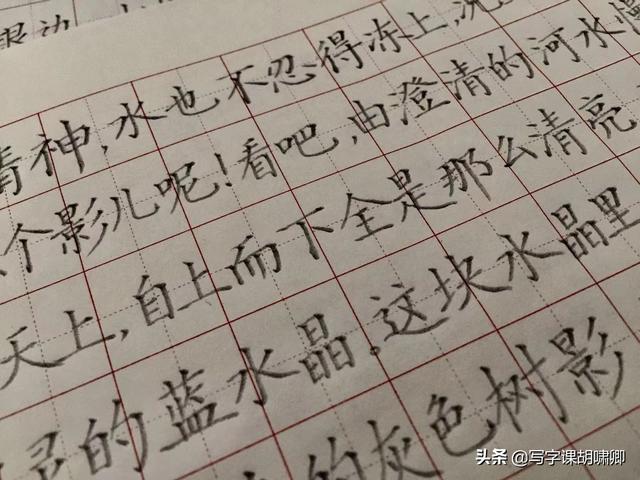 精神,水也不忍得冻上,况
个影儿呢!看吧,由澄清的河水慢
天上,自上而下全是那么清亮
的蓝水晶。这块水晶里
的灰色树影
头条 @写字课胡啸卿